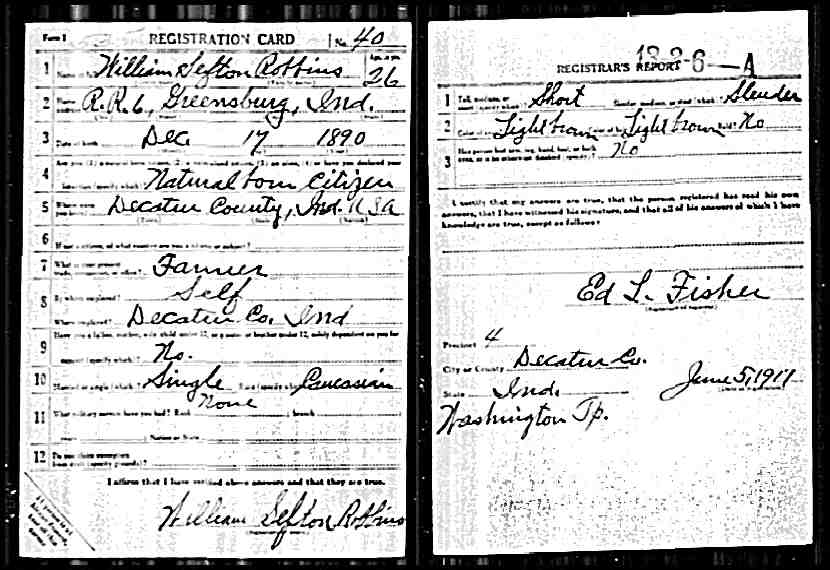 Form 1 REGISTRATION CARD No. 40
1 William Sefton Robbins Age, in yrs. 26
2 R.R. 6, Greensburg, Ind.
3 Date of birth Dec. 17 1890
Are you (1) a natural born citizen, (2) a naturalized citizen, (3) an alien, (4) or have you declared your
4 intention (specify which)? Natural born Citizen
5 Decatur County, Ind. USA
6 If not a citizen, of what country are you a citizen or subject?
7 What is your present trade, occupation, or office? Farmer
8 By whom employed? Self
Where employed? Decatur Co. Ind
Have you a father, mother, wife, child under 12, or a sister or brother under 12, solely dependent on you for
9 support (specify which)? No.
10 Married or single (which)? Single Race (specify which)? Caucasian
11 What military service have you had? Rank None ; branch
years ; Nation or State
12 Do you claim exemption
from draft (specify grounds)?
I affirm that I have verified above answers and that they are true.
William Sefton Robbins
13-2-6-A
REGISTRAR'S REPORT
1 Tall, medium, or short (specify which)? Short Slender, medium, or stout (which)? Slender
2 Color of eyes? Light brown Color of hair? Light brown Bald? No
3 Has person lost arm, leg, hand, foot, or both eyes, or is he otherwise disabled (specify)? No
I certify that my answers are true, that the person registered has read his own
answers, that I have witnessed his signature, and that all of his answers of which I have
knowledge are true, except as follows:
Ed L. Fisher
(Signature of registrar)
Precinct 4
City or County Decatur Co.
State Ind. June 5, 1917
Washington Tp.